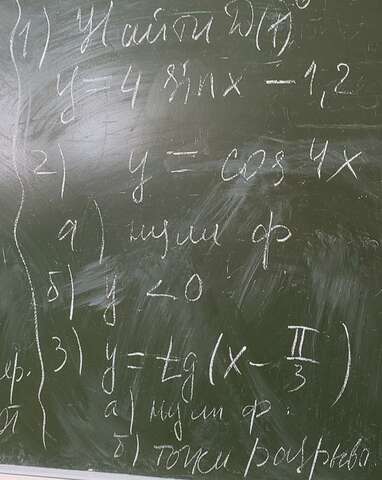 1) Найти D(f)
y = 4 sin x - 1,2
2) y = cos 4x
а) нули ф
б) y < 0
3) y = tg(x - π/3)
а) нули ф.
б) точки разрыва